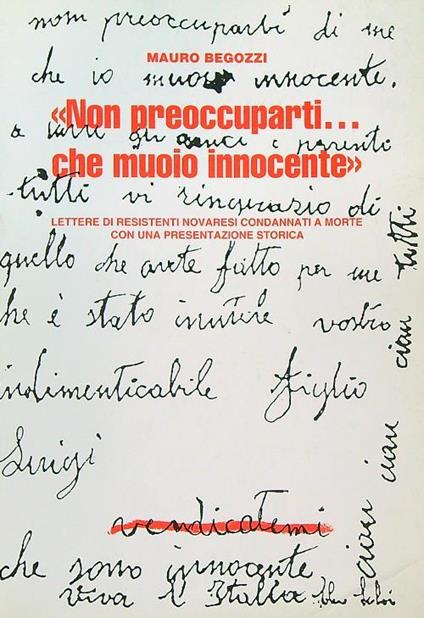 nom preoccuparti di me
MAURO BEGOZZI
che io muoio innocente.
«Non preoccuparti...
a tutti gli amici e parenti
che muoio innocente»
tutti vi ringrazio di
LETTERE DI RESISTENTI NOVARESI CONDANNATI A MORTE
CON UNA PRESENTAZIONE STORICA
quello che avete fatto per me
he è stato inutile vostro
indimenticabile figlio
Luigi
vendicatemi
che sono innocente
Viva l Italia
ciau ciau ciau tutti